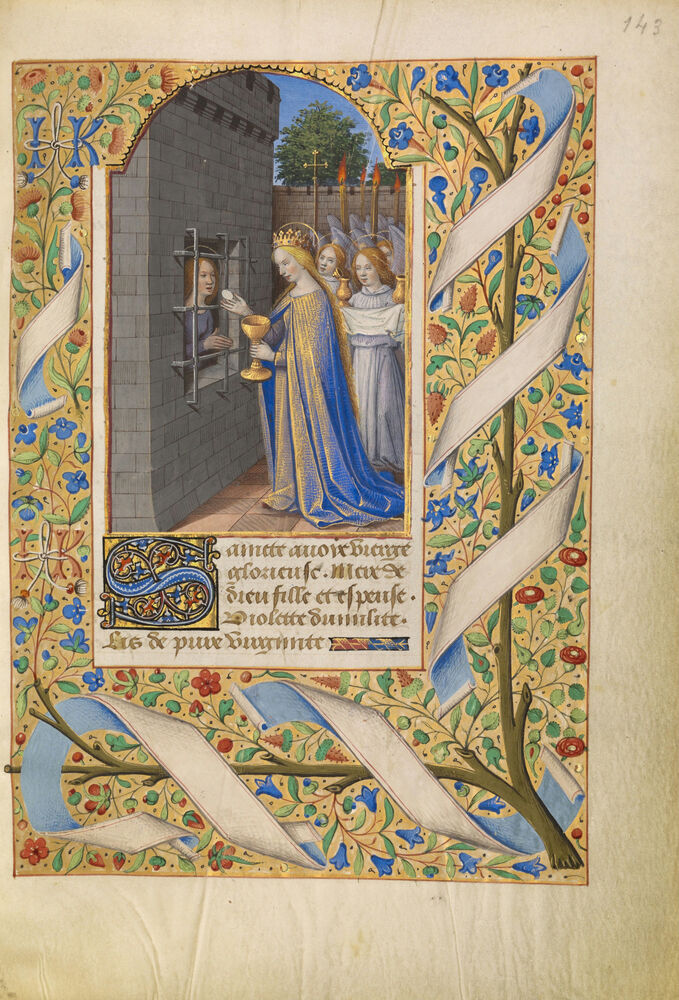 143
IK
Saincte auoye vierge
glorieuse. Mere de
dieu fille et espeuse.
Violette dumilite.
Lis de pure virginite
IK